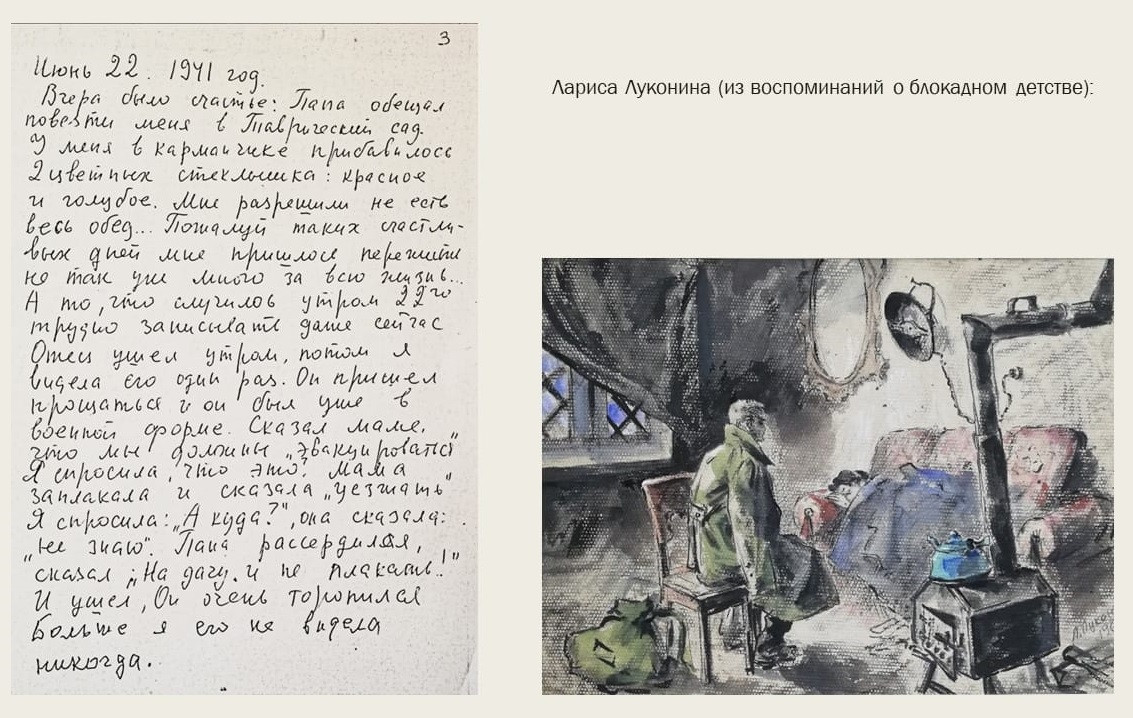 3
Июнь 22. 1941 год.
Вчера было счастье: Папа обещал
повезти меня в Таврический сад.
У меня в карманчике прибавилось
2 цветных стеклышка: красное
и голубое. Мне разрешили не есть
весь обед... Пожалуй таких счастли-
вых дней мне пришлось пережить
не так уж много за всю жизнь...
А то, что случилось утром 22го
трудно записывать даже сейчас
Отец ушел утром, потом я
видела его один раз. Он пришел
прощаться и он был уже в
военной форме. Сказал маме,
что мы должны „эвакуироваться"
Я спросила, что это? Мама
заплакала и сказала „уезжать"
Я спросила: „А куда?", она сказала:
„не знаю". Папа рассердился,
сказал: „На дачу. и не плакать!"
И ушел, Он очень торопился
Больше я его не видела
никогда.
Лариса Луконина (из воспоминаний о блокадном детстве):